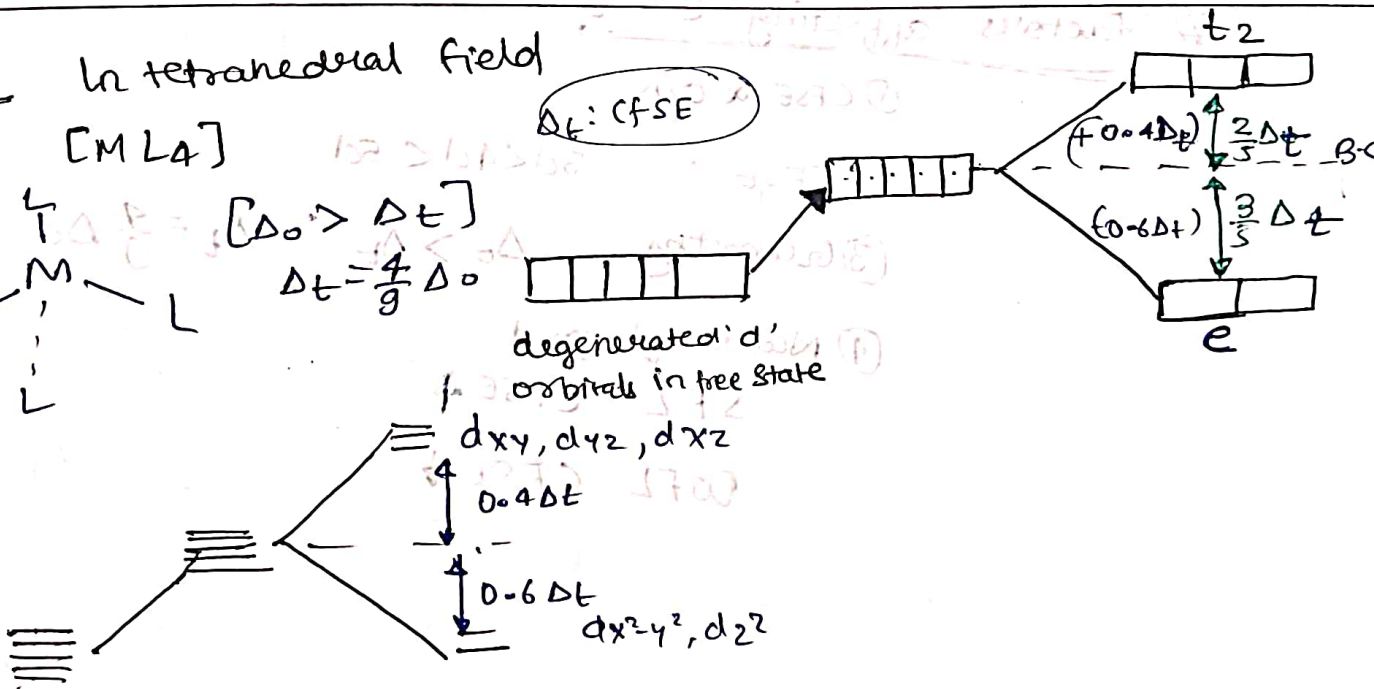 In tetrahedral field
Δt: CFSE
[ML4]
[Δo > Δt]
Δt = 4/9 Δo
L
M
L
L
degenerated 'd'
orbitals in free state
t2
(+0.4Δt) 2/5 Δt
(0-6Δt) 3/5 Δt
e
dxy, dyz, dxz
0.4Δt
0-6 Δt
dx²-y², dz²